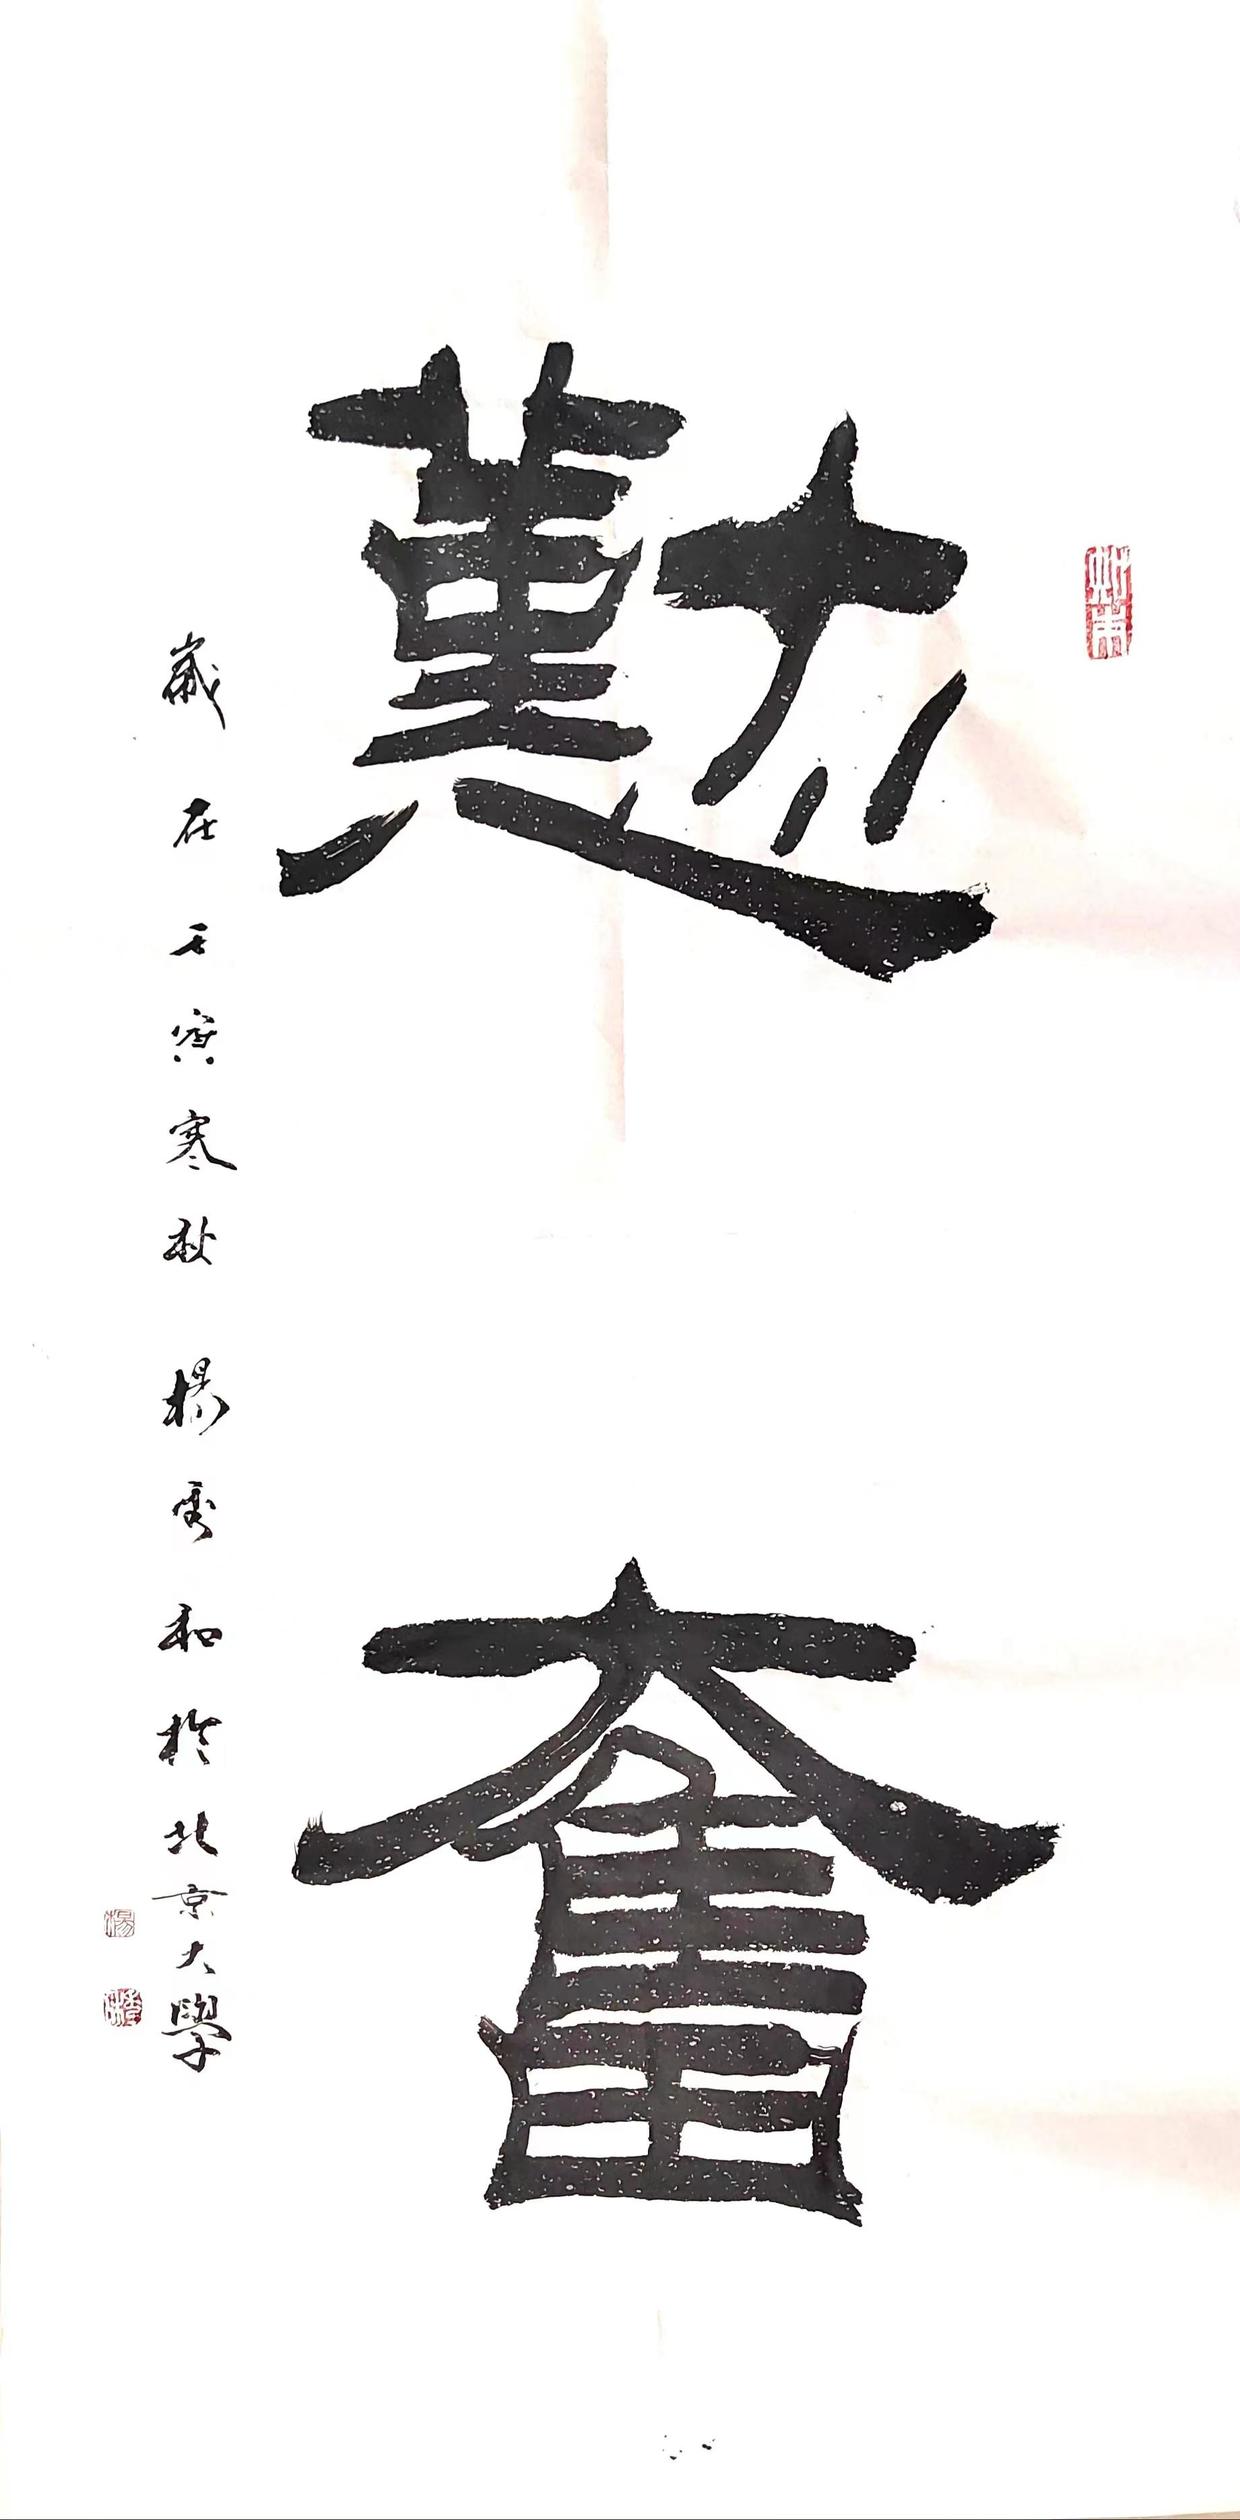 懃奮
歲在壬寅寒秋楊秀和於北京大學
楊